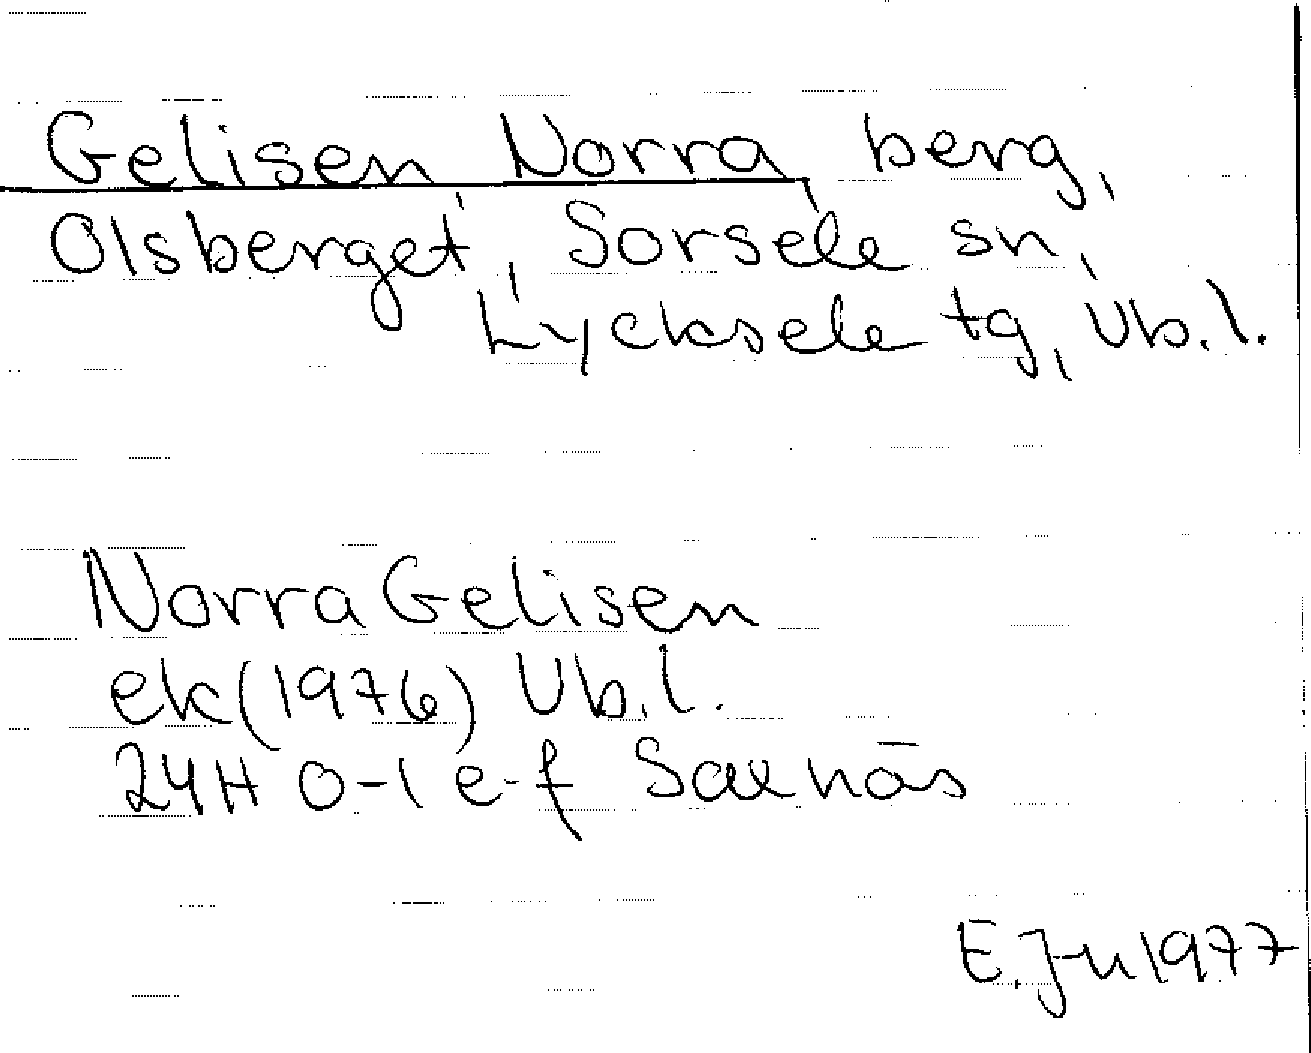 Gelisen, Norra, berg,
Olsberget, Sorsele sn,
Lycksele tg, Vb.l.
Norra Gelisen
ek (1976) Vb.l.
24H 0-1 e-f Saxnäs
E. J-n 1977